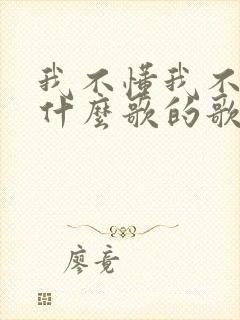 我不懂我不
什麼歌的歌
廖竟